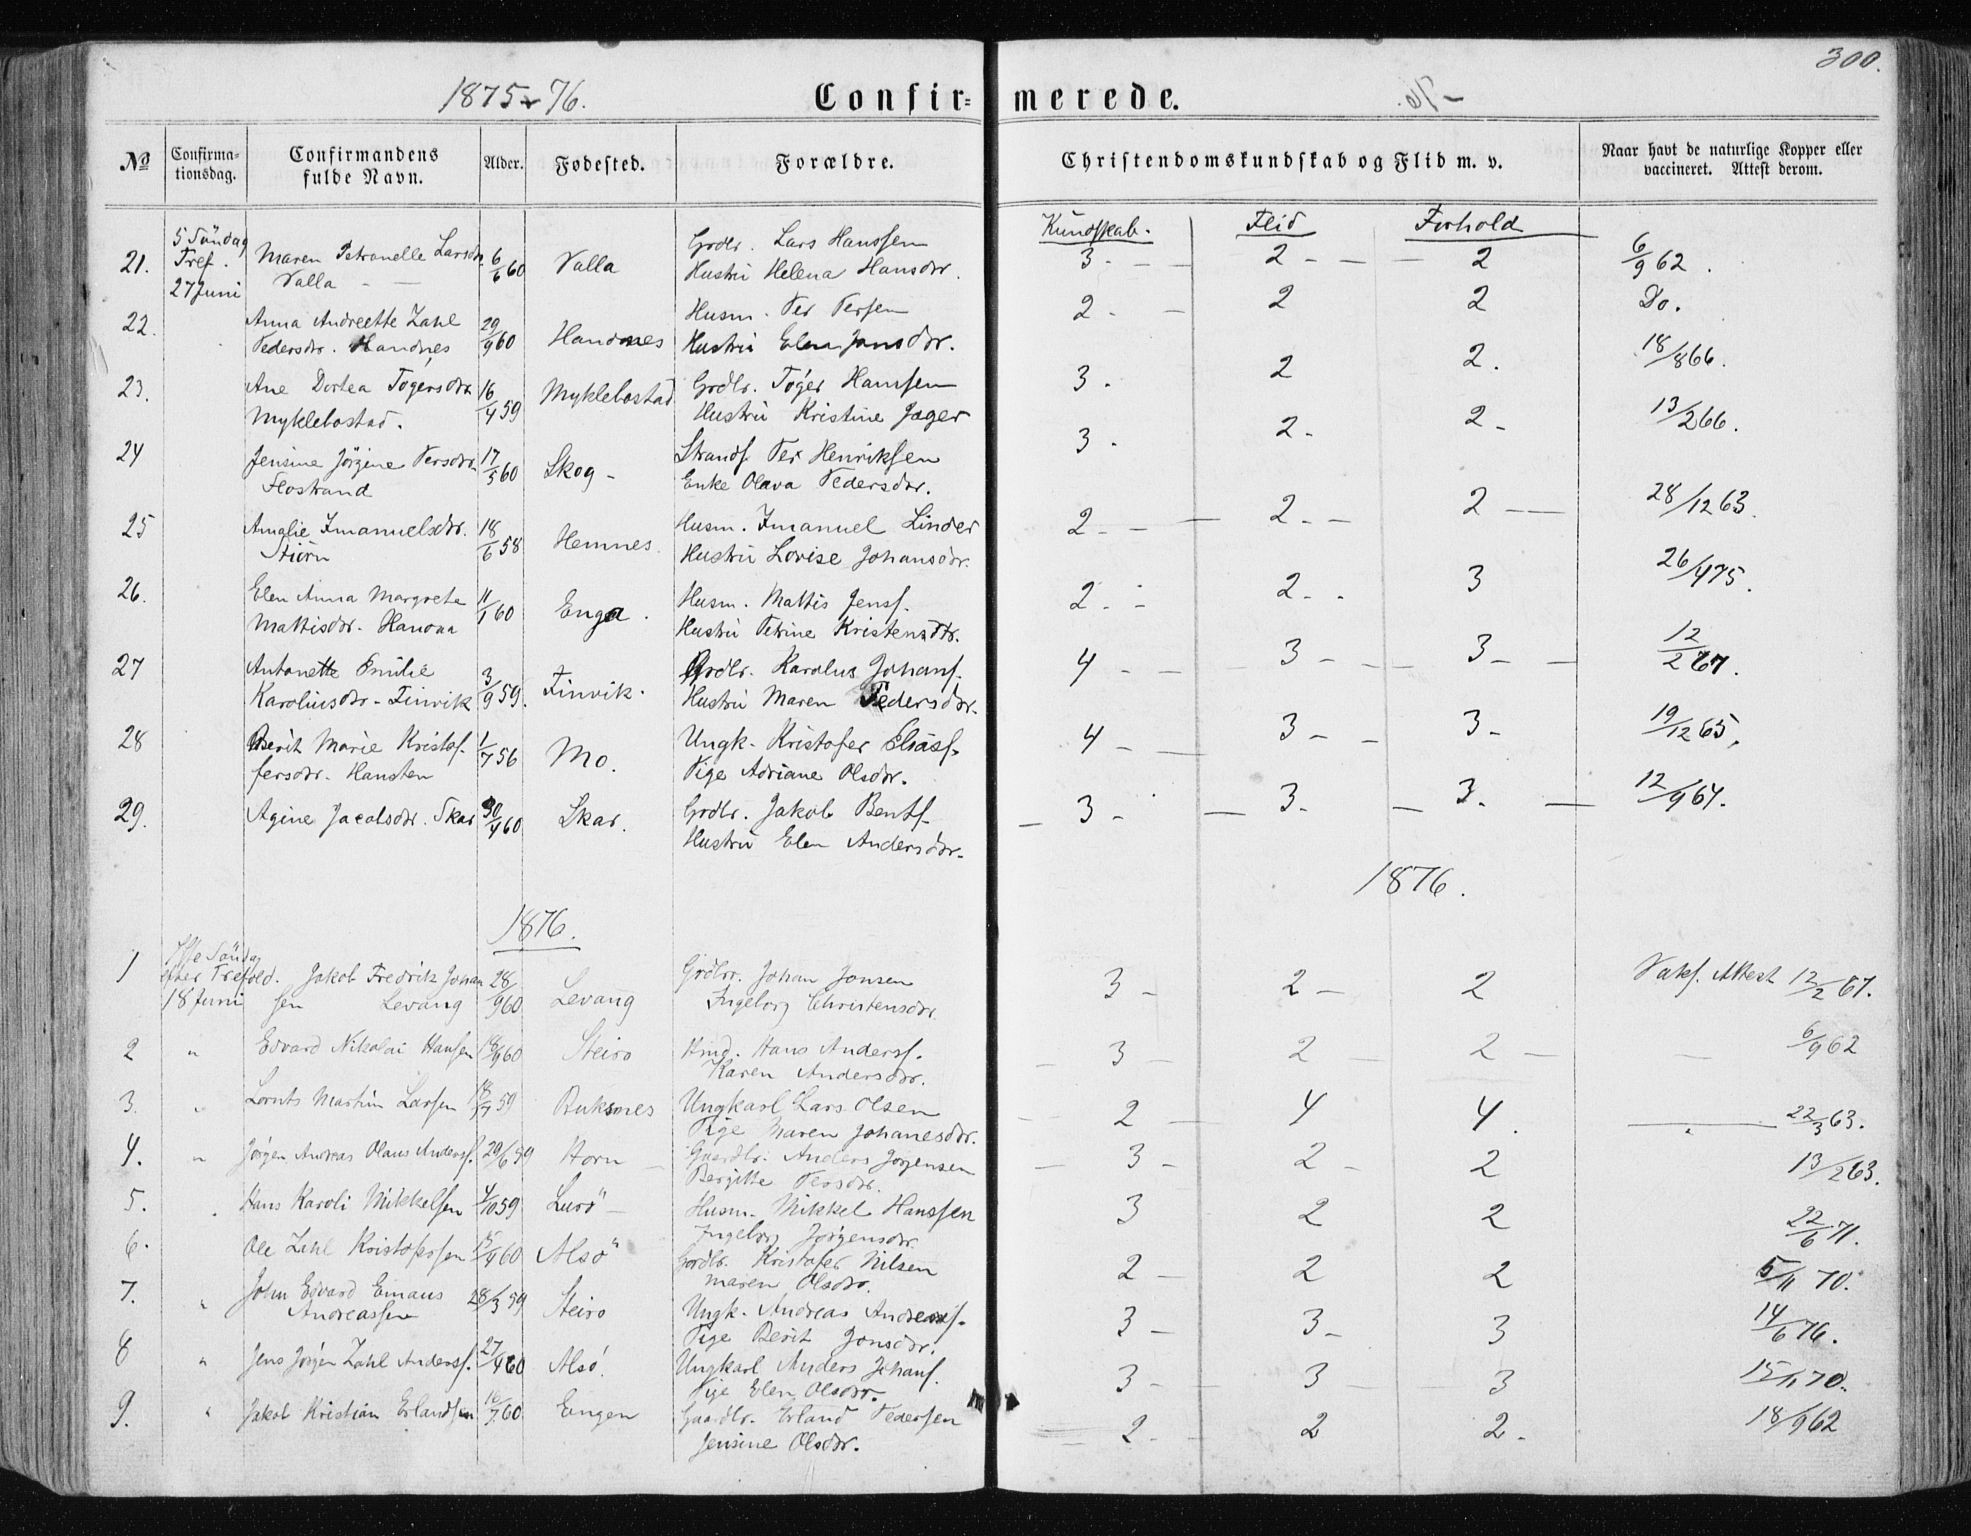 300.
1875-76. Confirmerede.
№ Confirmationsdag. Confirmandens fulde Navn. Alder. Fødested. Forældre. Christendomskundskab og Flid m. v. Naar havt de naturlige Kopper eller vaccineret. Attest derom.
Kundskab. Flid Forhold
21. 5 Söndag Tref. 27 Juni Maren Petronelle Larsdr. 6/6 60 Valla Grdbr. Lars Hanssen 3 - - 2 - - 2 6/9 62.
Valla - - Hustru Helena Hansdr.
22. Anna Andreette Zahl 29/9 60 Handnes Husm. Per Persen 2 - - 2 2 Do.
Pedersdr. Handnes Hustru Elen Jonsdr.
23. Ane Dortea Tögersdr. 16/4 59 Myklebostad Grdbr. Töger Hansen 3. 2 2. 18/8 66.
Myklebostad. Hustru Kristine Jager
24 Jensine Jörgine Persdr. 17/5 60 Skog - Strands. Per Henriksen 3. 2. 2 - 13/2 66.
Flostrand Enke Olava Pedersdr.
25 Amalie Imanuelsdr. 18/6 58 Hemnes. Husm. Imanuel Linder 2 - - 2 - - 2 - - 28/12 63.
Hustru Lovise Johansdr.
26. Elen Anna Margrete 11/1 60 Enga. Husm. Mattis Jens. 2 - - 2 - - 3 26/4 75.
Mattisdr. Hustru Petrine Kristensdtr.
27 Antonette Emilie 3/9 59. Finvik. Grdbr. Karolus Johans. 4 - - 3 - - 3 - - 12/2 67.
Karolusdr - Finvik Hustru Maren Pedersdr.
28 Berit Marie Kristof- 1/7 56 Mo. Ungk. Kristofer Eliass. 4 - - 3 - - 3 - 19/12 65,
fersdr. Hansten Pige Adriane Olsdr.
29. Agine Jacobsdr. Skar 30/4 60 Skar. Grdbr. Jakob Bents. - 3 - - 3. - 3. - 12/9 64.
Hustru Elen Andersdr.
1876. 1876.
1 efter Trefold. 18 Juni Jakob Fredrik Johan 28/9 60 Levang Grdbr. Johan Jonsen 3 - 2 - 2 Vaks. Attest 12/2 67.
sen Levang Ingeborg Christensdr.
2 " Edvard Nikolai Hansen 18/9 60 Steiro Hans Anders. 3 - 2 - 2 - - 6/9 62
Karen Andersdr.
3. " Lornts Martin Larsen 18/7 59 Buksnes Ungkarl Lars Olsen 2 4 4. " 22/3 63.
Pige Maren Johanesdr.
4. " Jørgen Andreas Olaus Anders. 29/6 59 Horn - Gaardbr. Anders Jørgensen 3 - 2 - 2 13/2 63.
Bergitte Persdr.
5. " Hans Karoli Mikkelsen 4/10 59 Lurö - Husm. Mikkel Hanssen 3 2 2 22/6 71.
Ingeborg Jørgensdr
6. Ole Zahl Kristofersen 15/9 60 Alsö Grdbr. Kristofer Nilsen 2 - 2 2 5/11 70.
Maren Olsdr.
7. " John Edvard Emaus 28/3 59 Steiro Ungk. Andreas Andreas. 3 - 3 - 3 14/6 76.
Andreassen Pige Berit Jonsdr.
8 " Jens Jørgen Zahl Anders. 27/4 60 Alsó. Ungkarl Anders Johans. 3 - 3 - 3 15/11 70.
Pige Elen Olsdr.
9. " Jakob Kristian Erlandsen 16/7 60 Engen Gaardbr. Erland Pedersen 2 - 2 2. 18/9 62
Jensine Olsdr.